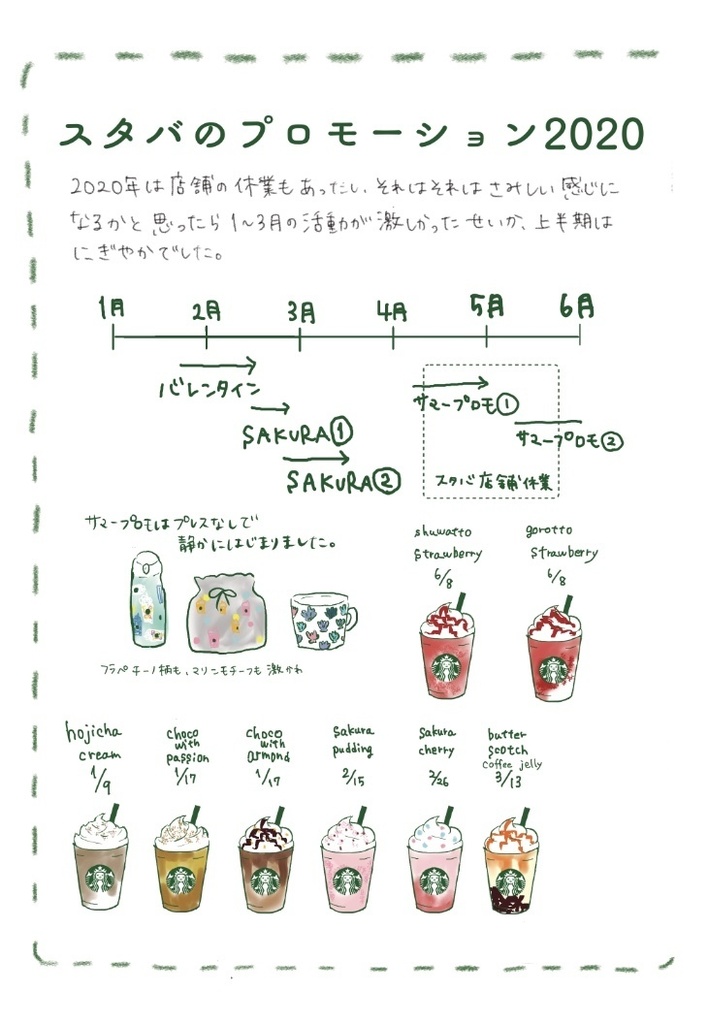 スタバのプロモーション2020
2020年は店舗の休業もあったし、それはそれはさみしい感じに
なるかと思ったら1〜3月の活動が激しかったせいか、上半期は
にぎやかでした。
1月 2月 3月 4月 5月 6月
バレンタイン
SAKURA①
SAKURA②
サマープロモ①
サマープロモ②
スタバ店舗休業
サマープロモはプレスなしで
静かにはじまりました。
フラペチーノ柄も、マリンモチーフも激かわ
shuwatto
strawberry
6/8
gorotto
strawberry
6/8
hojicha
cream
1/9
choco
with
passion
1/17
choco
with
armond
1/17
sakura
pudding
2/15
sakura
cherry
2/26
butter
scotch
coffee jelly
3/13